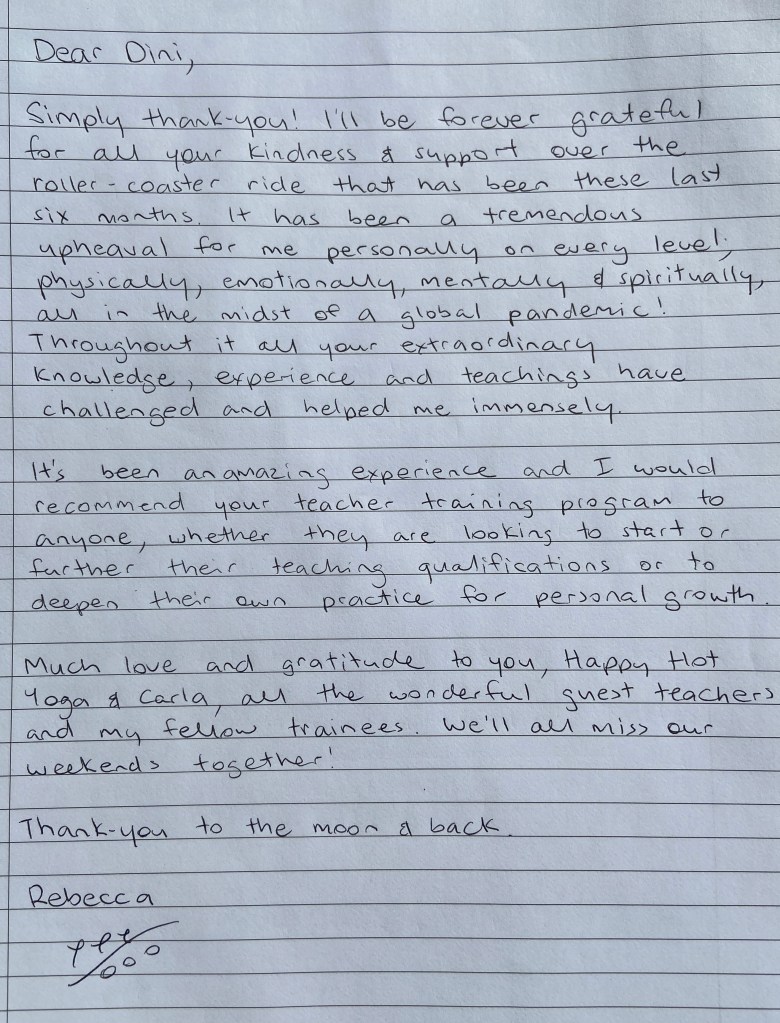 Dear Dini,
Simply thank-you! I'll be forever grateful
for all your kindness & support over the
roller-coaster ride that has been these last
six months. It has been a tremendous
upheaval for me personally on every level;
physically, emotionally, mentally & spiritually,
all in the midst of a global pandemic!
Throughout it all your extraordinary
knowledge, experience and teachings have
challenged and helped me immensely.
It's been an amazing experience and I would
recommend your teacher training program to
anyone, whether they are looking to start or
further their teaching qualifications or to
deepen their own practice for personal growth.
Much love and gratitude to you, Happy Hot
Yoga & Carla, all the wonderful guest teachers
and my fellow trainees. We'll all miss our
weekends together!
Thank-you to the moon & back.
Rebecca